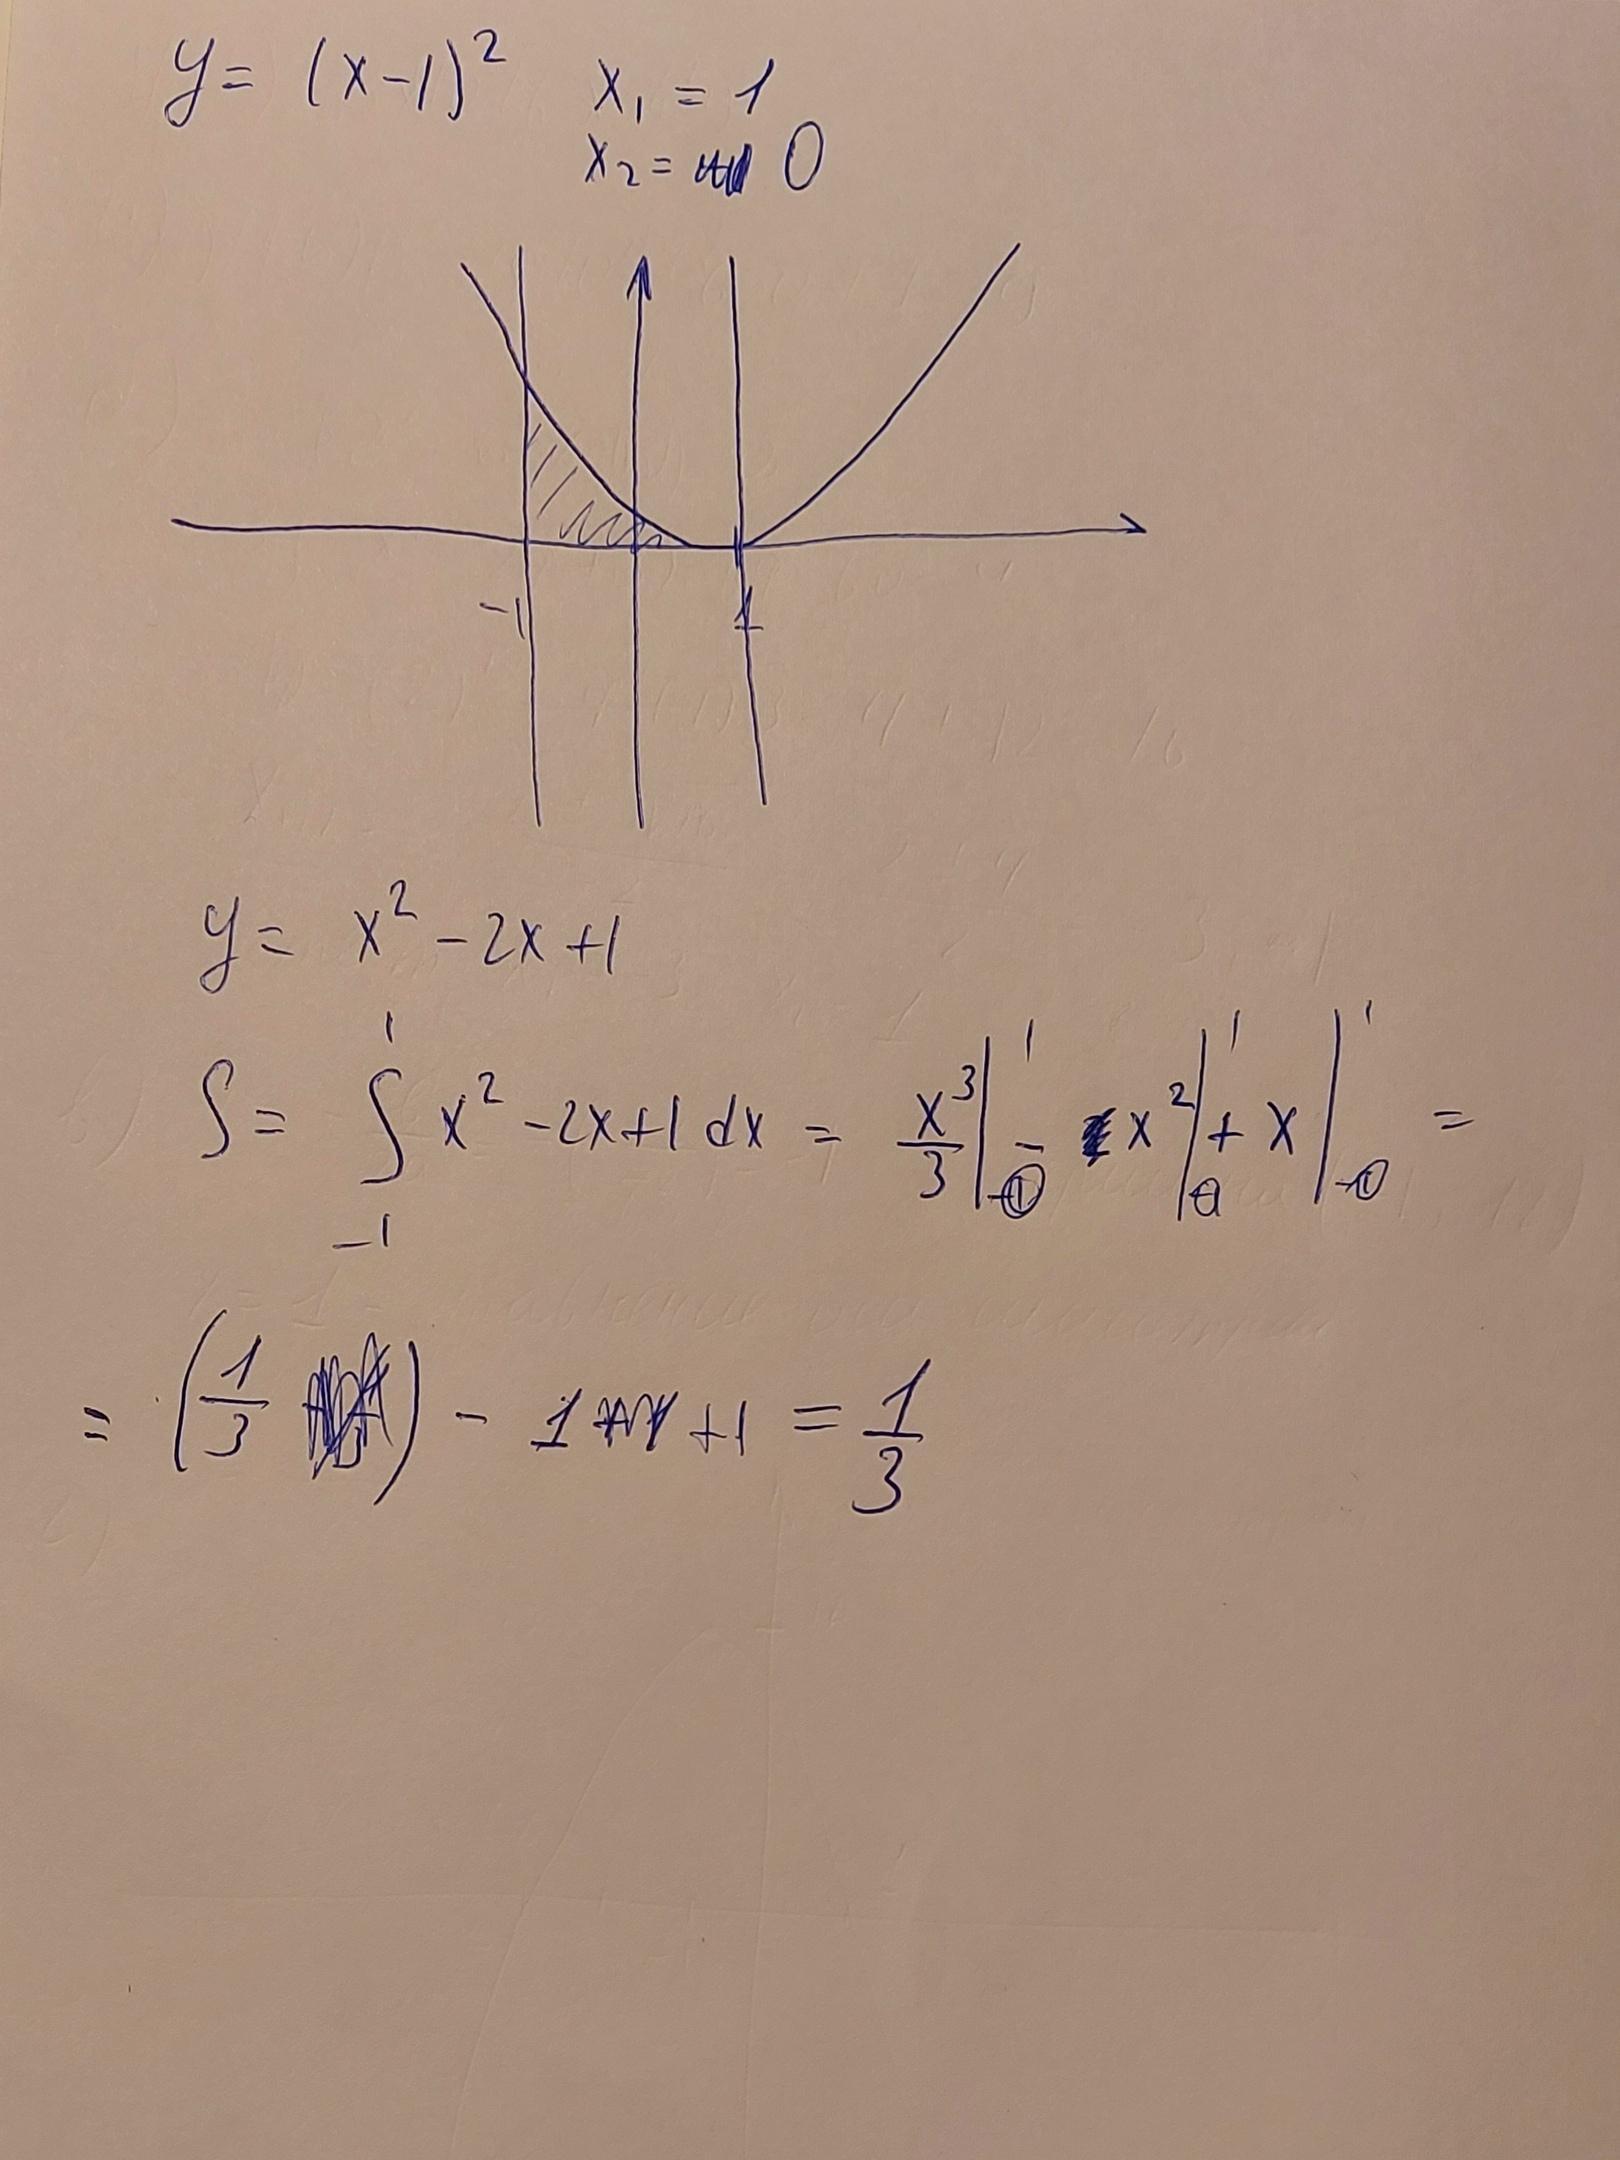 y = (x-1)² x₁ = 1
x₂ = 0
-1 1
y = x² - 2x + 1
S = ∫₋₁¹ x² - 2x + 1 dx = x³/3 |₀¹ - x² |₀¹ + x |₀¹ =
= (1/3) - 1 + 1 = 1/3